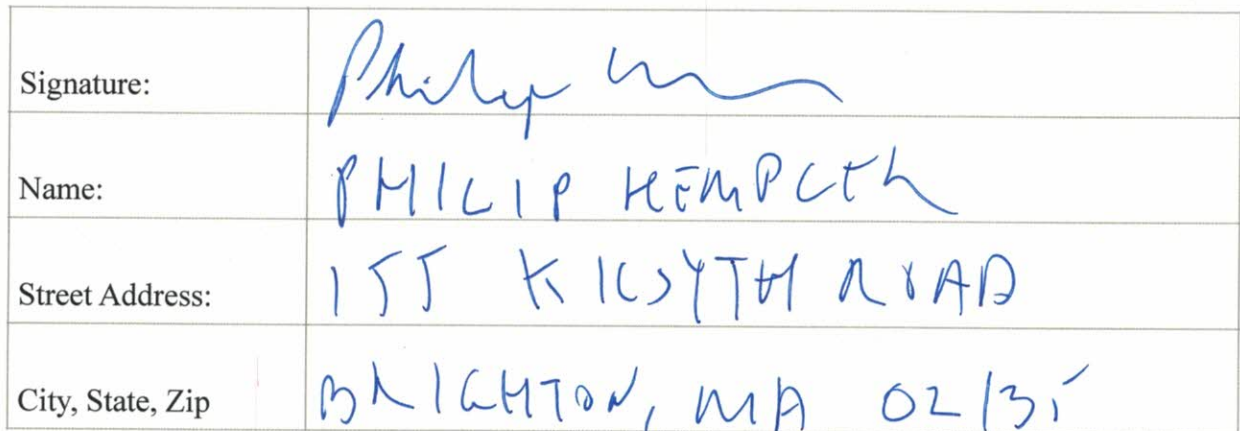 Signature: Philip
Name: PHILIP HEMPLER
Street Address: 155 KILSYTH ROAD
City, State, Zip BRIGHTON, MA 02135